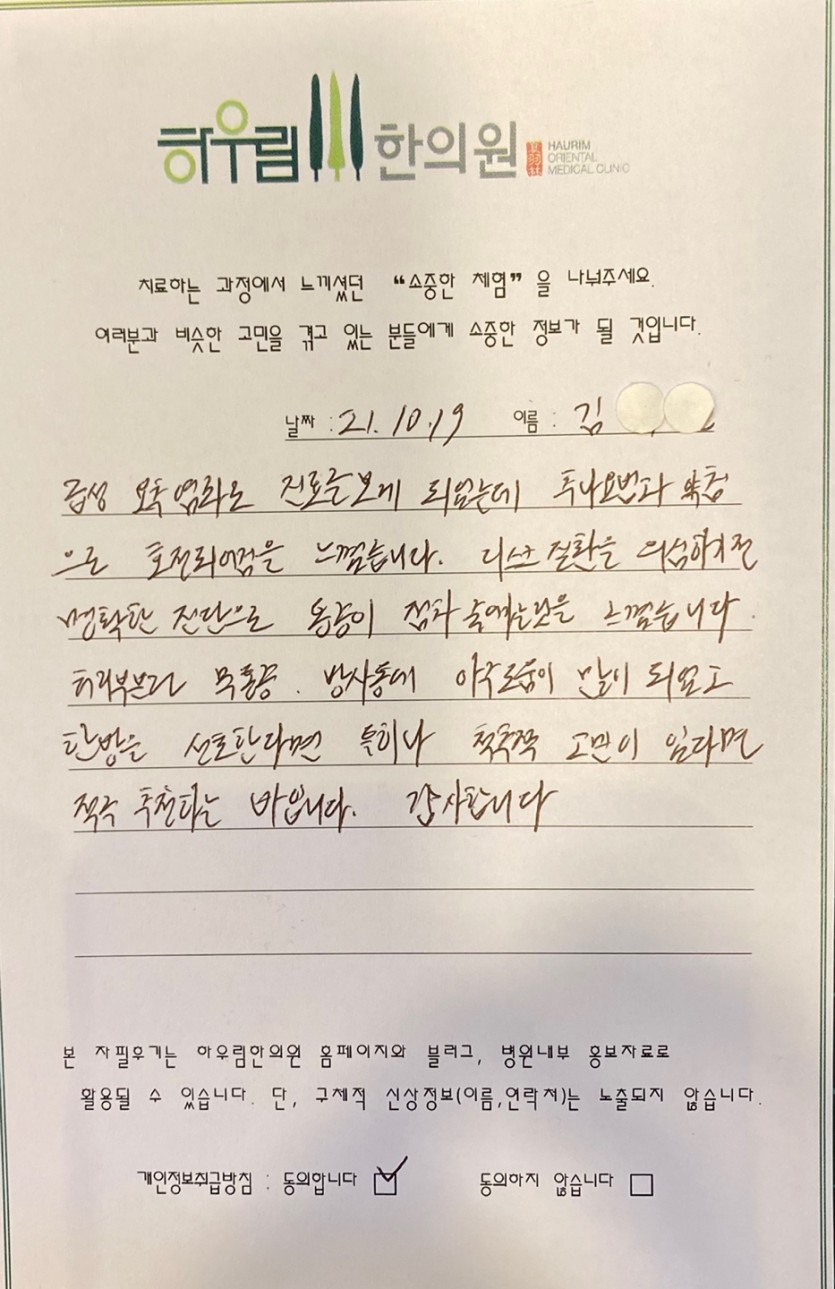 하우림 한의원
HAURIM
ORIENTAL
MEDICAL CLINIC
치료하는 과정에서 느끼셨던 “소중한 체험”을 나눠주세요.
여러분과 비슷한 고민을 겪고 있는 분들에게 소중한 정보가 될 것입니다.
날짜 : 21. 10. 19 이름 : 김
급성 요추 염좌로 진료를 보게 되었는데 추나요법과 약침
으로 호전되어감을 느꼈습니다. 디스크 질환을 의심하지만
명확한 진단으로 통증이 점차 줄어드는것을 느꼈습니다.
허리부분과 목통증. 방사통에 아주 도움이 많이 되었고
한방을 선호한다면 특히나 척추쪽 고민이 있다면
적극 추천하는 바입니다. 감사합니다
본 자필후기는 하우림한의원 홈페이지와 블러그, 병원내부 홍보자료로
활용될 수 있습니다. 단, 구체적 신상정보(이름,연락처)는 노출되지 않습니다.
개인정보취급방침 : 동의합니다 동의하지 않습니다